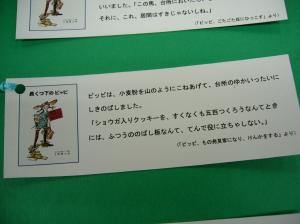 いいました。「この馬、台所においたら、
それに、これ、居間はすきじゃないしね。」
（「ピッピ、ごたごたに
長くつ下の ピッピ
ピッピは、小麦粉を山のようにこねあげて、台所のゆかいったいに
しきのばしました。
「ショウガ入りクッキーを、すくなくも五百つくろうなんてとき
には、ふつうののばし板なんて、てんで役に立ちゃしない。」
（「ピッピ、もの発見家になり、けんかをする」より）